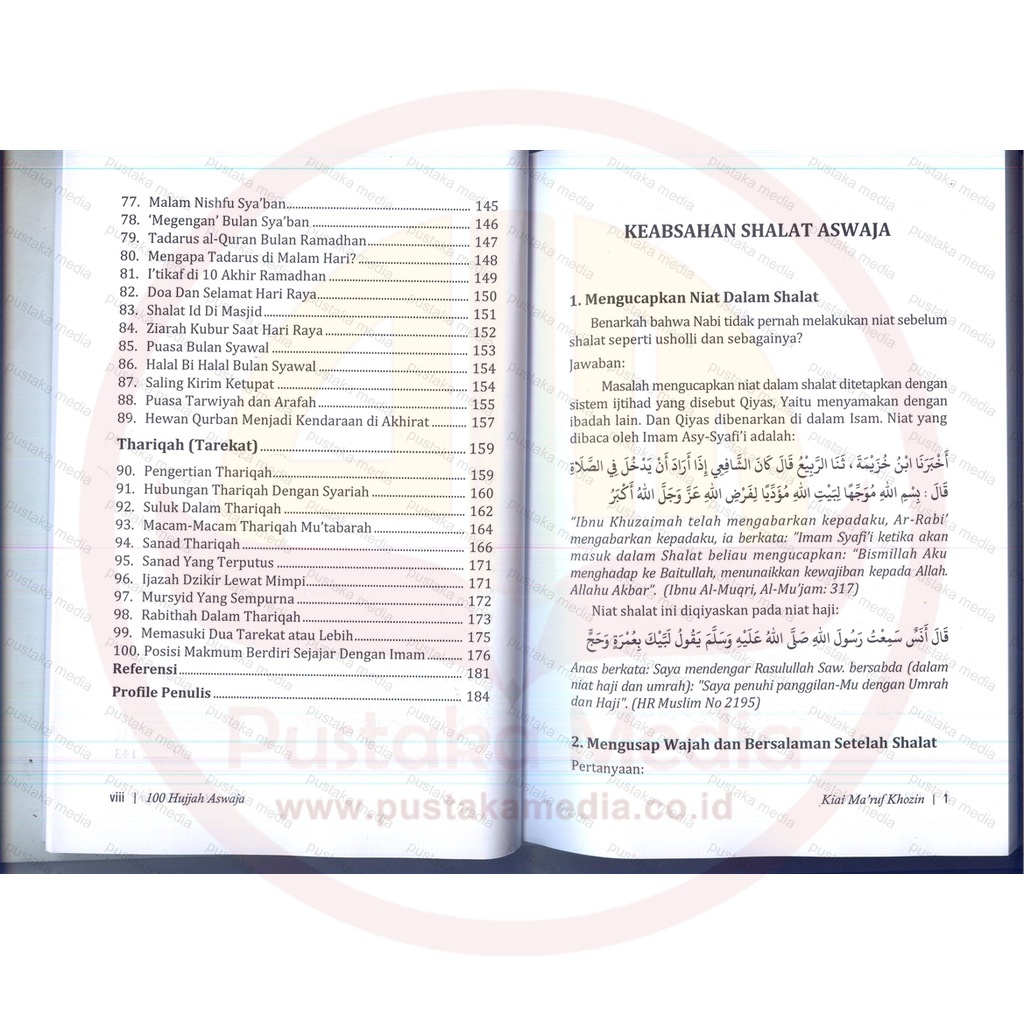 77. Malam Nishfu Sya'ban 145
78. 'Megengan' Bulan Sya'ban 146
79. Tadarus al-Quran Bulan Ramadhan 147
80. Mengapa Tadarus di Malam Hari? 148
81. I'tikaf di 10 Akhir Ramadhan 149
82. Doa Dan Selamat Hari Raya 150
83. Shalat Id Di Masjid 151
84. Ziarah Kubur Saat Hari Raya 152
85. Puasa Bulan Syawal 153
86. Halal Bi Halal Bulan Syawal 154
87. Saling Kirim Ketupat 154
88. Puasa Tarwiyah dan Arafah 155
89. Hewan Qurban Menjadi Kendaraan di Akhirat 157
Thariqah (Tarekat) 159
90. Pengertian Thariqah 159
91. Hubungan Thariqah Dengan Syariah 160
92. Suluk Dalam Thariqah 162
93. Macam-Macam Thariqah Mu'tabarah 164
94. Sanad Thariqah 166
95. Sanad Yang Terputus 171
96. Ijazah Dzikir Lewat Mimpi 171
97. Mursyid Yang Sempurna 172
98. Rabithah Dalam Thariqah 173
99. Memasuki Dua Tarekat atau Lebih 175
100. Posisi Makmum Berdiri Sejajar Dengan Imam 176
Referensi 181
Profile Penulis 184
viii | 100 Hujjah Aswaja
KEABSAHAN SHALAT ASWAJA
1. Mengucapkan Niat Dalam Shalat
Benarkah bahwa Nabi tidak pernah melakukan niat sebelum
shalat seperti usholli dan sebagainya?
Jawaban:
Masalah mengucapkan niat dalam shalat ditetapkan dengan
sistem ijtihad yang disebut Qiyas, Yaitu menyamakan dengan
ibadah lain. Dan Qiyas dibenarkan di dalam Isam. Niat yang
dibaca oleh Imam Asy-Syafi'i adalah:
أَخْبَرَنَا ابْنُ خُزَيْمَةَ ، ثَنَا الرَّبِيْعُ قَالَ كَانَ الشَّافِعِي إِذَا أَرَادَ أَنْ يَدْخُلَ فِي الصَّلَاةِ
قَالَ : بِسْمِ اللهِ مُوَجِّهًا لِبَيْتِ اللهِ مُؤَدِّيًا لِفَرْضِ اللهِ عَزَّ وَجَلَّ اللهُ أَكْبَرُ
"Ibnu Khuzaimah telah mengabarkan kepadaku, Ar-Rabi'
mengabarkan kepadaku, ia berkata: "Imam Syafi'i ketika akan
masuk dalam Shalat beliau mengucapkan: "Bismillah Aku
menghadap ke Baitullah, menunaikkan kewajiban kepada Allah.
Allahu Akbar". (Ibnu Al-Muqri, Al-Mu'jam: 317)
Niat shalat ini diqiyaskan pada niat haji:
قَالَ أَنَسٌ سَمِعْتُ رَسُولَ اللهِ صَلَّى اللهُ عَلَيْهِ وَسَلَّمَ يَقُولُ لَبَّيْكَ بِعُمْرَةٍ وَحَجٍّ
Anas berkata: Saya mendengar Rasulullah Saw. bersabda (dalam
niat haji dan umrah): "Saya penuhi panggilan-Mu dengan Umrah
dan Haji". (HR Muslim No 2195)
2. Mengusap Wajah dan Bersalaman Setelah Shalat
Pertanyaan:
Kiai Ma'ruf Khozin | 1
Pustaka Media
www.pustakamedia.co.id